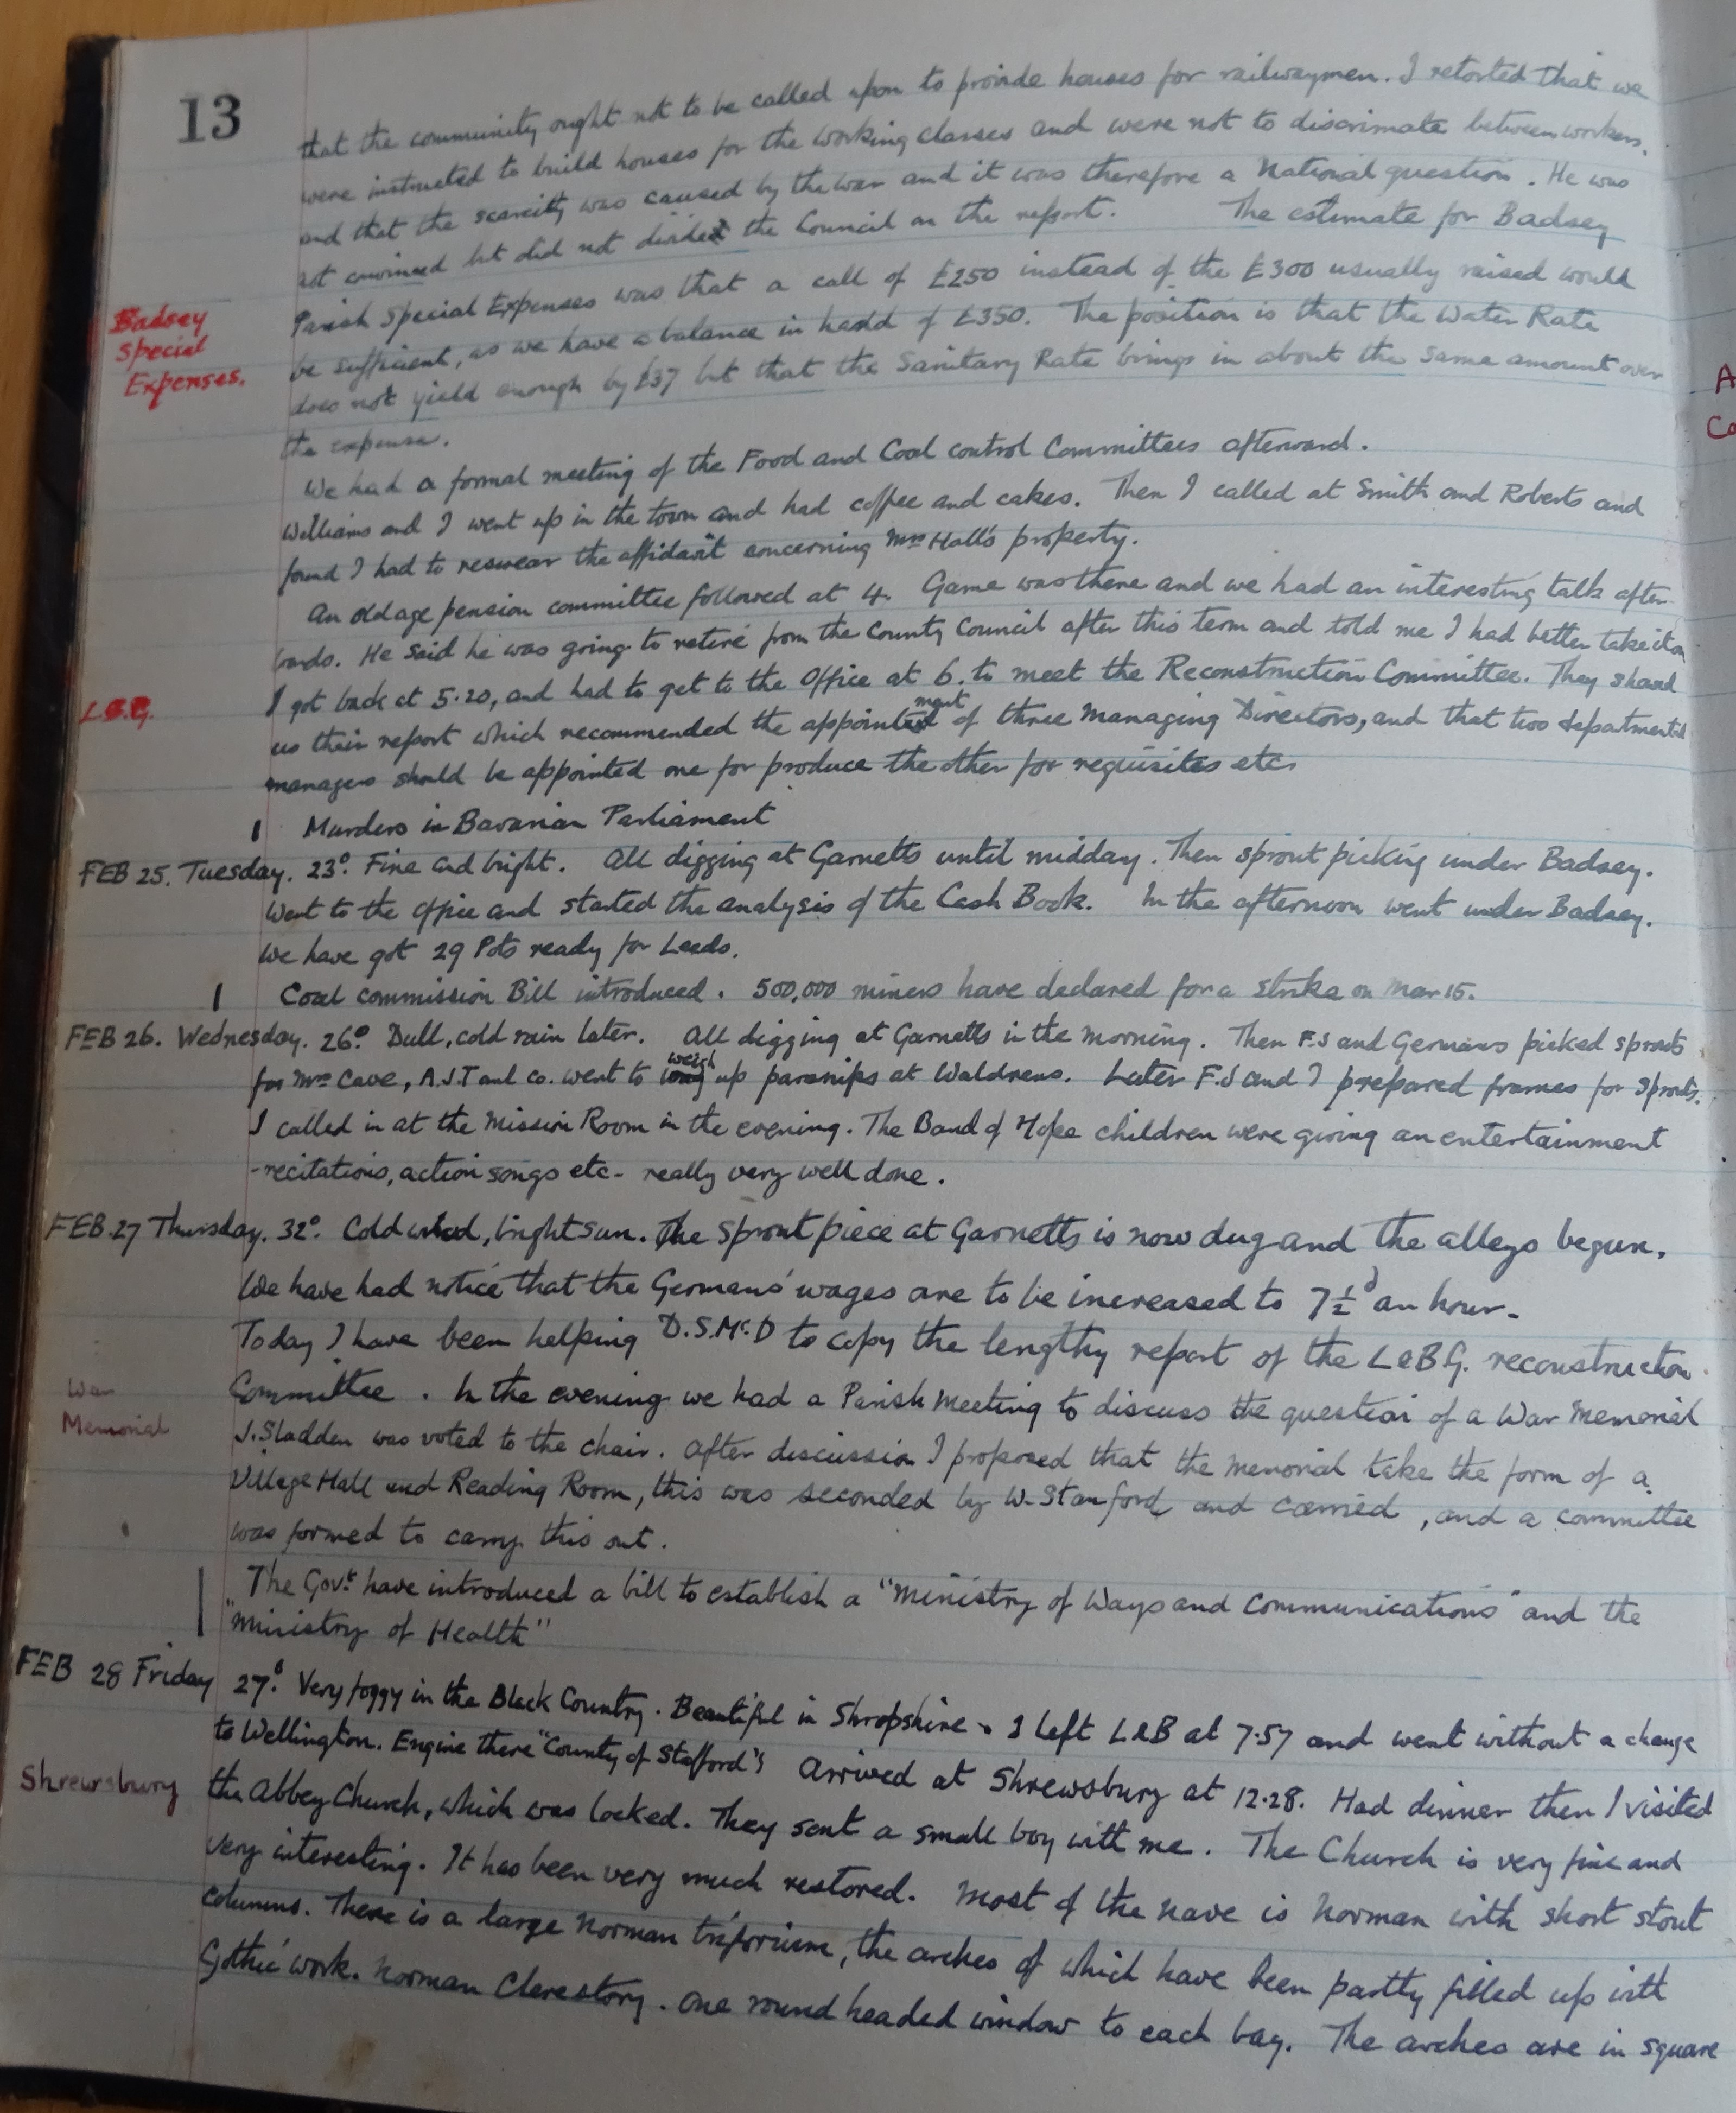 13
that the community ought not to be called upon to provide houses for railwaymen. I retorted that we
were instructed to build houses for the working classes and were not to discrimate between workers,
and that the scarcity was caused by the war and it was therefore a National question. He was
not convinced but did not divide the Council on the report. The estimate for Badsey
Badsey Special Expenses.
Parish Special Expenses was that a call of £250 instead of the £300 usually raised would
be sufficient, as we have a balance in hand of £350. The position is that the Water Rate
does not yield enough by £37 but that the Sanitary Rate brings in about the same amount over
the expense.
We had a formal meeting of the Food and Coal control Committees afterward.
Williams and I went up in the town and had coffee and cakes. Then I called at Smith and Roberts and
found I had to reswear the affidavit concerning Mrs Hall's property.
An old age pension committee followed at 4. Game was there and we had an interesting talk after-
wards. He said he was going to retire from the County Council after this term and told me I had better take it on
L.B.G.
I got back at 5.20, and had to get to the Office at 6. to meet the Reconstruction Committee. They shewed
us their report which recommended the appointment of three Managing Directors, and that two departmental
managers should be appointed one for produce the other for requisites etc.
Murders in Bavarian Parliament
FEB 25. Tuesday. 23° Fine and bright. All digging at Garnetts until midday. Then sprout picking under Badsey.
Went to the office and started the analysis of the Cash Book. In the afternoon went under Badsey.
We have got 29 Pots ready for Leeds.
Coal commission Bill introduced. 500,000 miners have declared for a strike on Mar 15.
FEB 26. Wednesday. 26° Dull, cold rain later. All digging at Garnetts in the morning. Then F.S and Germans picked sprouts
for Mrs Cave, A.J.T and co. went to weigh up parsnips at Waldrens. Later F.S and I prepared frames for sprouts.
I called in at the Mission Room in the evening. The Band of Hope children were giving an entertainment
-recitations, action songs etc- really very well done.
FEB 27 Thursday. 32° Cold wind, bright sun. The sprout piece at Garnetts is now dug and the alleys begun.
We have had notice that the Germans' wages are to be increased to 7½d an hour.
Today I have been helping D.S.McD to copy the lengthy report of the L&BG. reconstruction
War Memorial
Committee. In the evening we had a Parish Meeting to discuss the question of a War Memorial
J. Sladden was voted to the chair. After discussion I proposed that the Memorial take the form of a
Village Hall and Reading Room, this was seconded by W. Stanford and carried, and a committee
was formed to carry this out.
The Govt have introduced a bill to establish a "Ministry of Ways and Communications" and the
"Ministry of Health"
FEB 28 Friday 27° Very foggy in the Black Country. Beautiful in Shropshire. I left L&B at 7.57 and went without a change
to Wellington. Engine there "County of Stafford". Arrived at Shrewsbury at 12.28. Had dinner then I visited
Shrewsbury
the Abbey Church, which was locked. They sent a small boy with me. The Church is very fine and
very interesting. It has been very much restored. Most of the nave is Norman with short stout
columns. There is a large Norman triforium, the arches of which have been partly filled up with
Gothic work. Norman Clerestory. One round headed window to each bay. The arches are in square